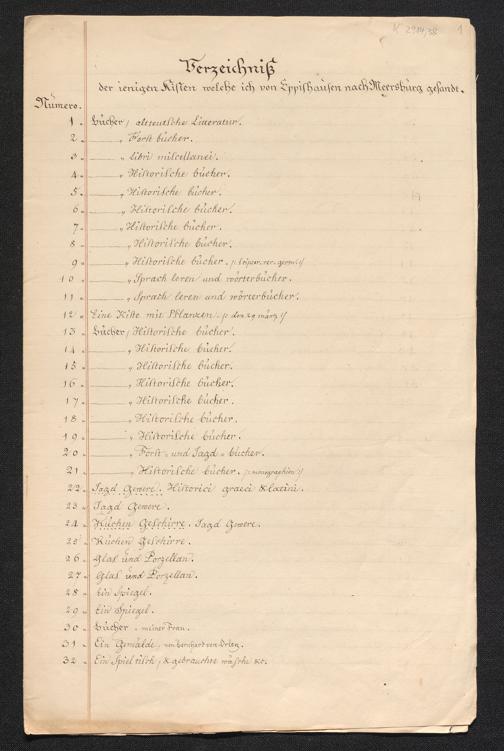 K 2914,38 1
Verzeichniß
der ienigen Kisten welche ich von Eppishausen nach Meersburg gesandt.
Numero.
1. Bücher, altteutsche Litteratur.
2. " Forst bücher.
3. " libri miscellanei.
4. " Historische bücher.
5. " Historische bücher.
6. " Historische bücher.
7. " Historische bücher.
8. " Historische bücher.
9. " Historische bücher. /: scipor. rer. germ: /
10. " Sprach leren und wörterbücher.
11. " Sprach leren und wörterbücher.
12. Eine Kiste mit Pflanzen. /: den 29 märz :/
13. Bücher, Historische bücher.
14. " Historische bücher.
15. " Historische bücher.
16. " Historische bücher.
17. " Historische bücher.
18. " Historische bücher.
19. " Historische bücher.
20. " Forst- und Jagd-bücher.
21. " Historische bücher. /: monographien :/
22. Jagd Gewere. Historici graeci & latini.
23. Jagd Gewere.
24. Küchen Geschirre. Jagd Gewere.
25. Küchen Geschirre.
26. Glas und Porzellan.
27. Glas und Porzellan.
28. Ein Spiegel.
29. Ein Spiegel.
30. Bücher meiner Frau.
31. Ein Gemälde, von bernhard van Orley.
32. Ein Spieltisch, & gebrauchte wäsche &c.